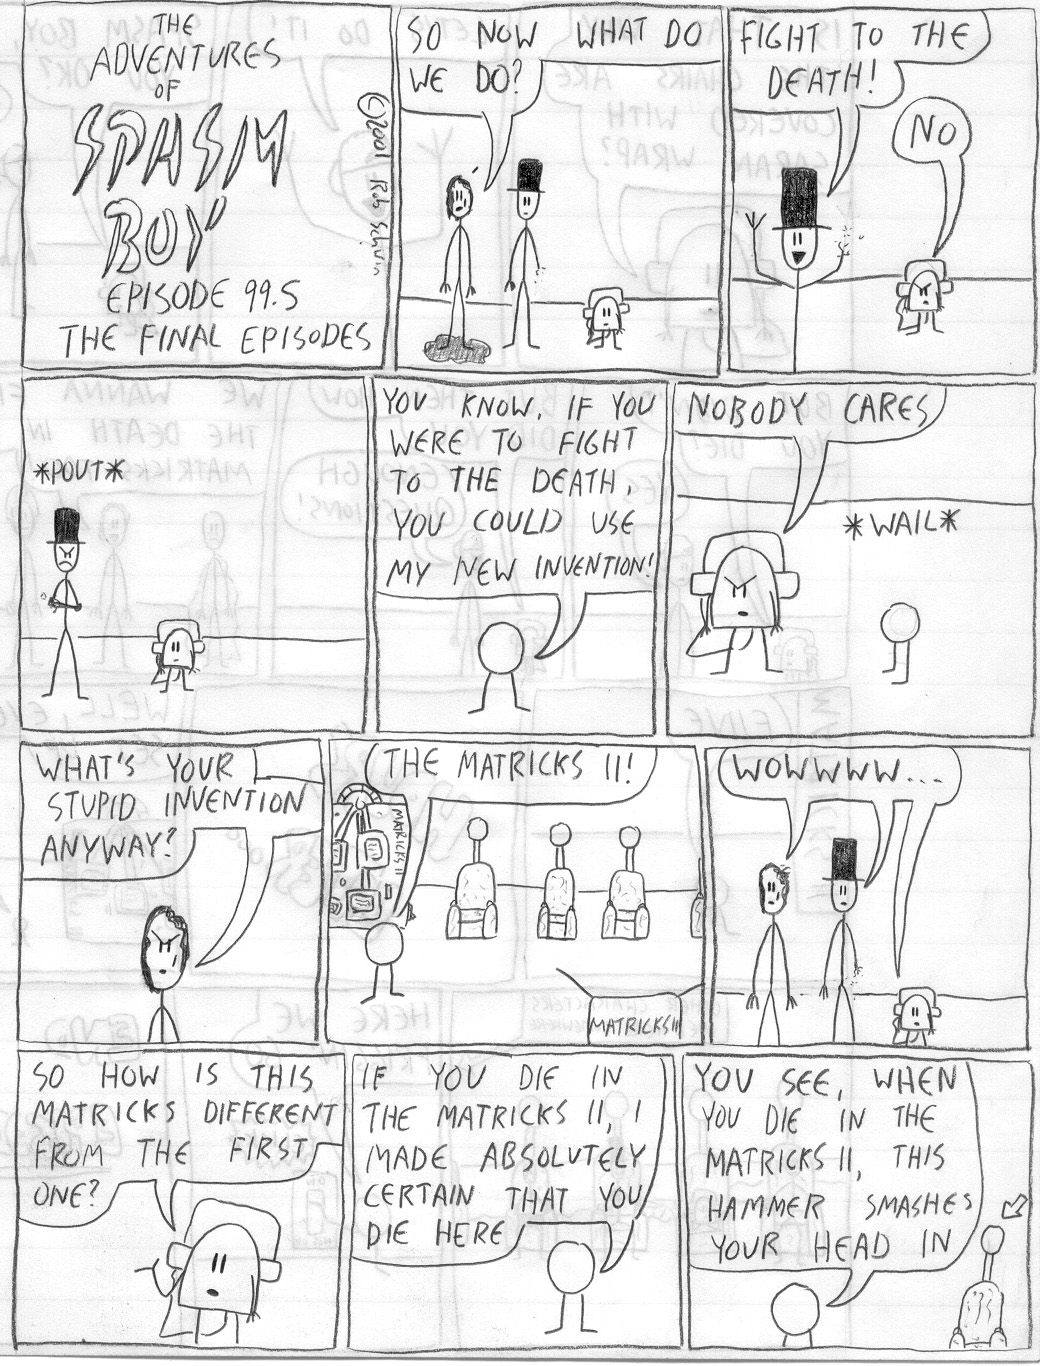 THE
ADVENTURES
OF
SPASM
BOY
EPISODE 99.5
THE FINAL EPISODES
©2001 Rob
SO NOW WHAT DO
WE DO?
FIGHT TO THE
DEATH!
NO
*POUT*
YOU KNOW, IF YOU
WERE TO FIGHT
TO THE DEATH,
YOU COULD USE
MY NEW INVENTION!
NOBODY CARES
*WAIL*
WHAT'S YOUR
STUPID INVENTION
ANYWAY?
THE MATRICKS II!
MATRICKS II
MATRICKS II
WOWWWW...
SO HOW IS THIS
MATRICKS DIFFERENT
FROM THE FIRST
ONE?
IF YOU DIE IN
THE MATRICKS II, I
MADE ABSOLUTELY
CERTAIN THAT YOU
DIE HERE
YOU SEE, WHEN
YOU DIE IN THE
MATRICKS II, THIS
HAMMER SMASHES
YOUR HEAD IN